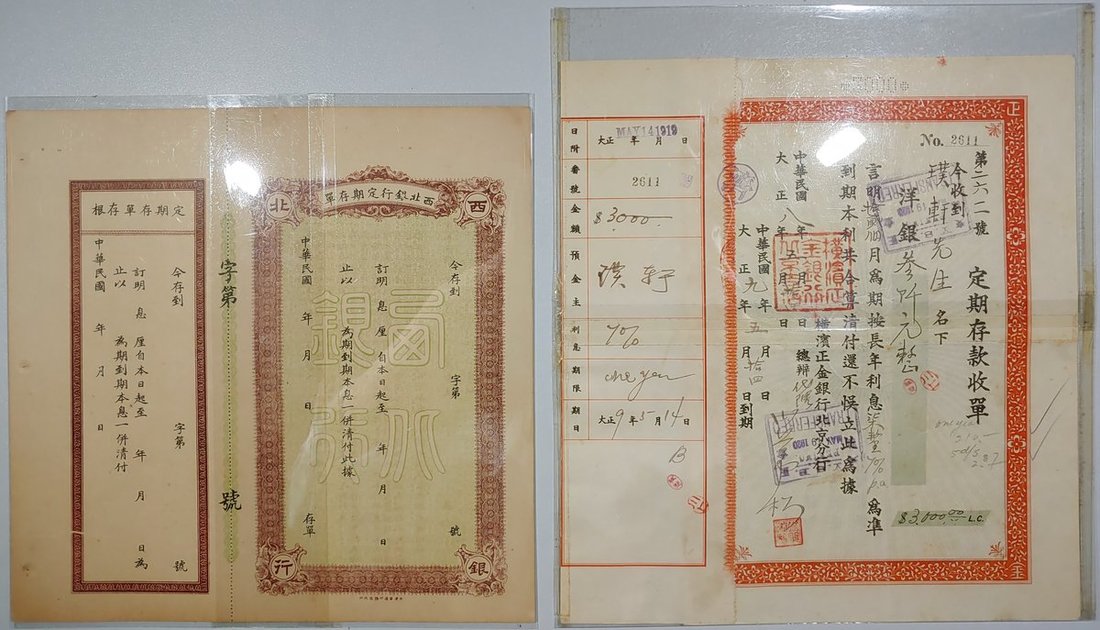 定期存單存根
今存到 字第 號
訂明 息 厘自本日起至 年 月 日為
止以 為期到期本息一併清付
中華民國 年 月 日
字第 號
西北銀行
西北銀行定期存單
今存到 字第 號
訂明 息 厘 自本日起至 年 月 日
止以 為期到期本息一併清付此據
中華民國 年 月 日 存單
西北銀行
日附 大正 年 月 日
MAY 14 1919
番號 2611
金額 $3000
預金主 璞軒
利息 7%
期限 one year
期日 大正 9 年 5 月 14 日
B
正
No. 2611
定期存款收單
第二六一一號
今收到
璞軒先生 名下
洋銀 參仟元整
言明 月為期按長年利息 7% p.a 為準
到期本利共合算清付還不悞立此為據
中華民國
大正 八年 五月 日
橫濱正金銀行北京分行
總辦
中華民國
大正 九年 五月 拾四日到期
TRANSFERRED
$3,000.00 L.C.
one year
210.-